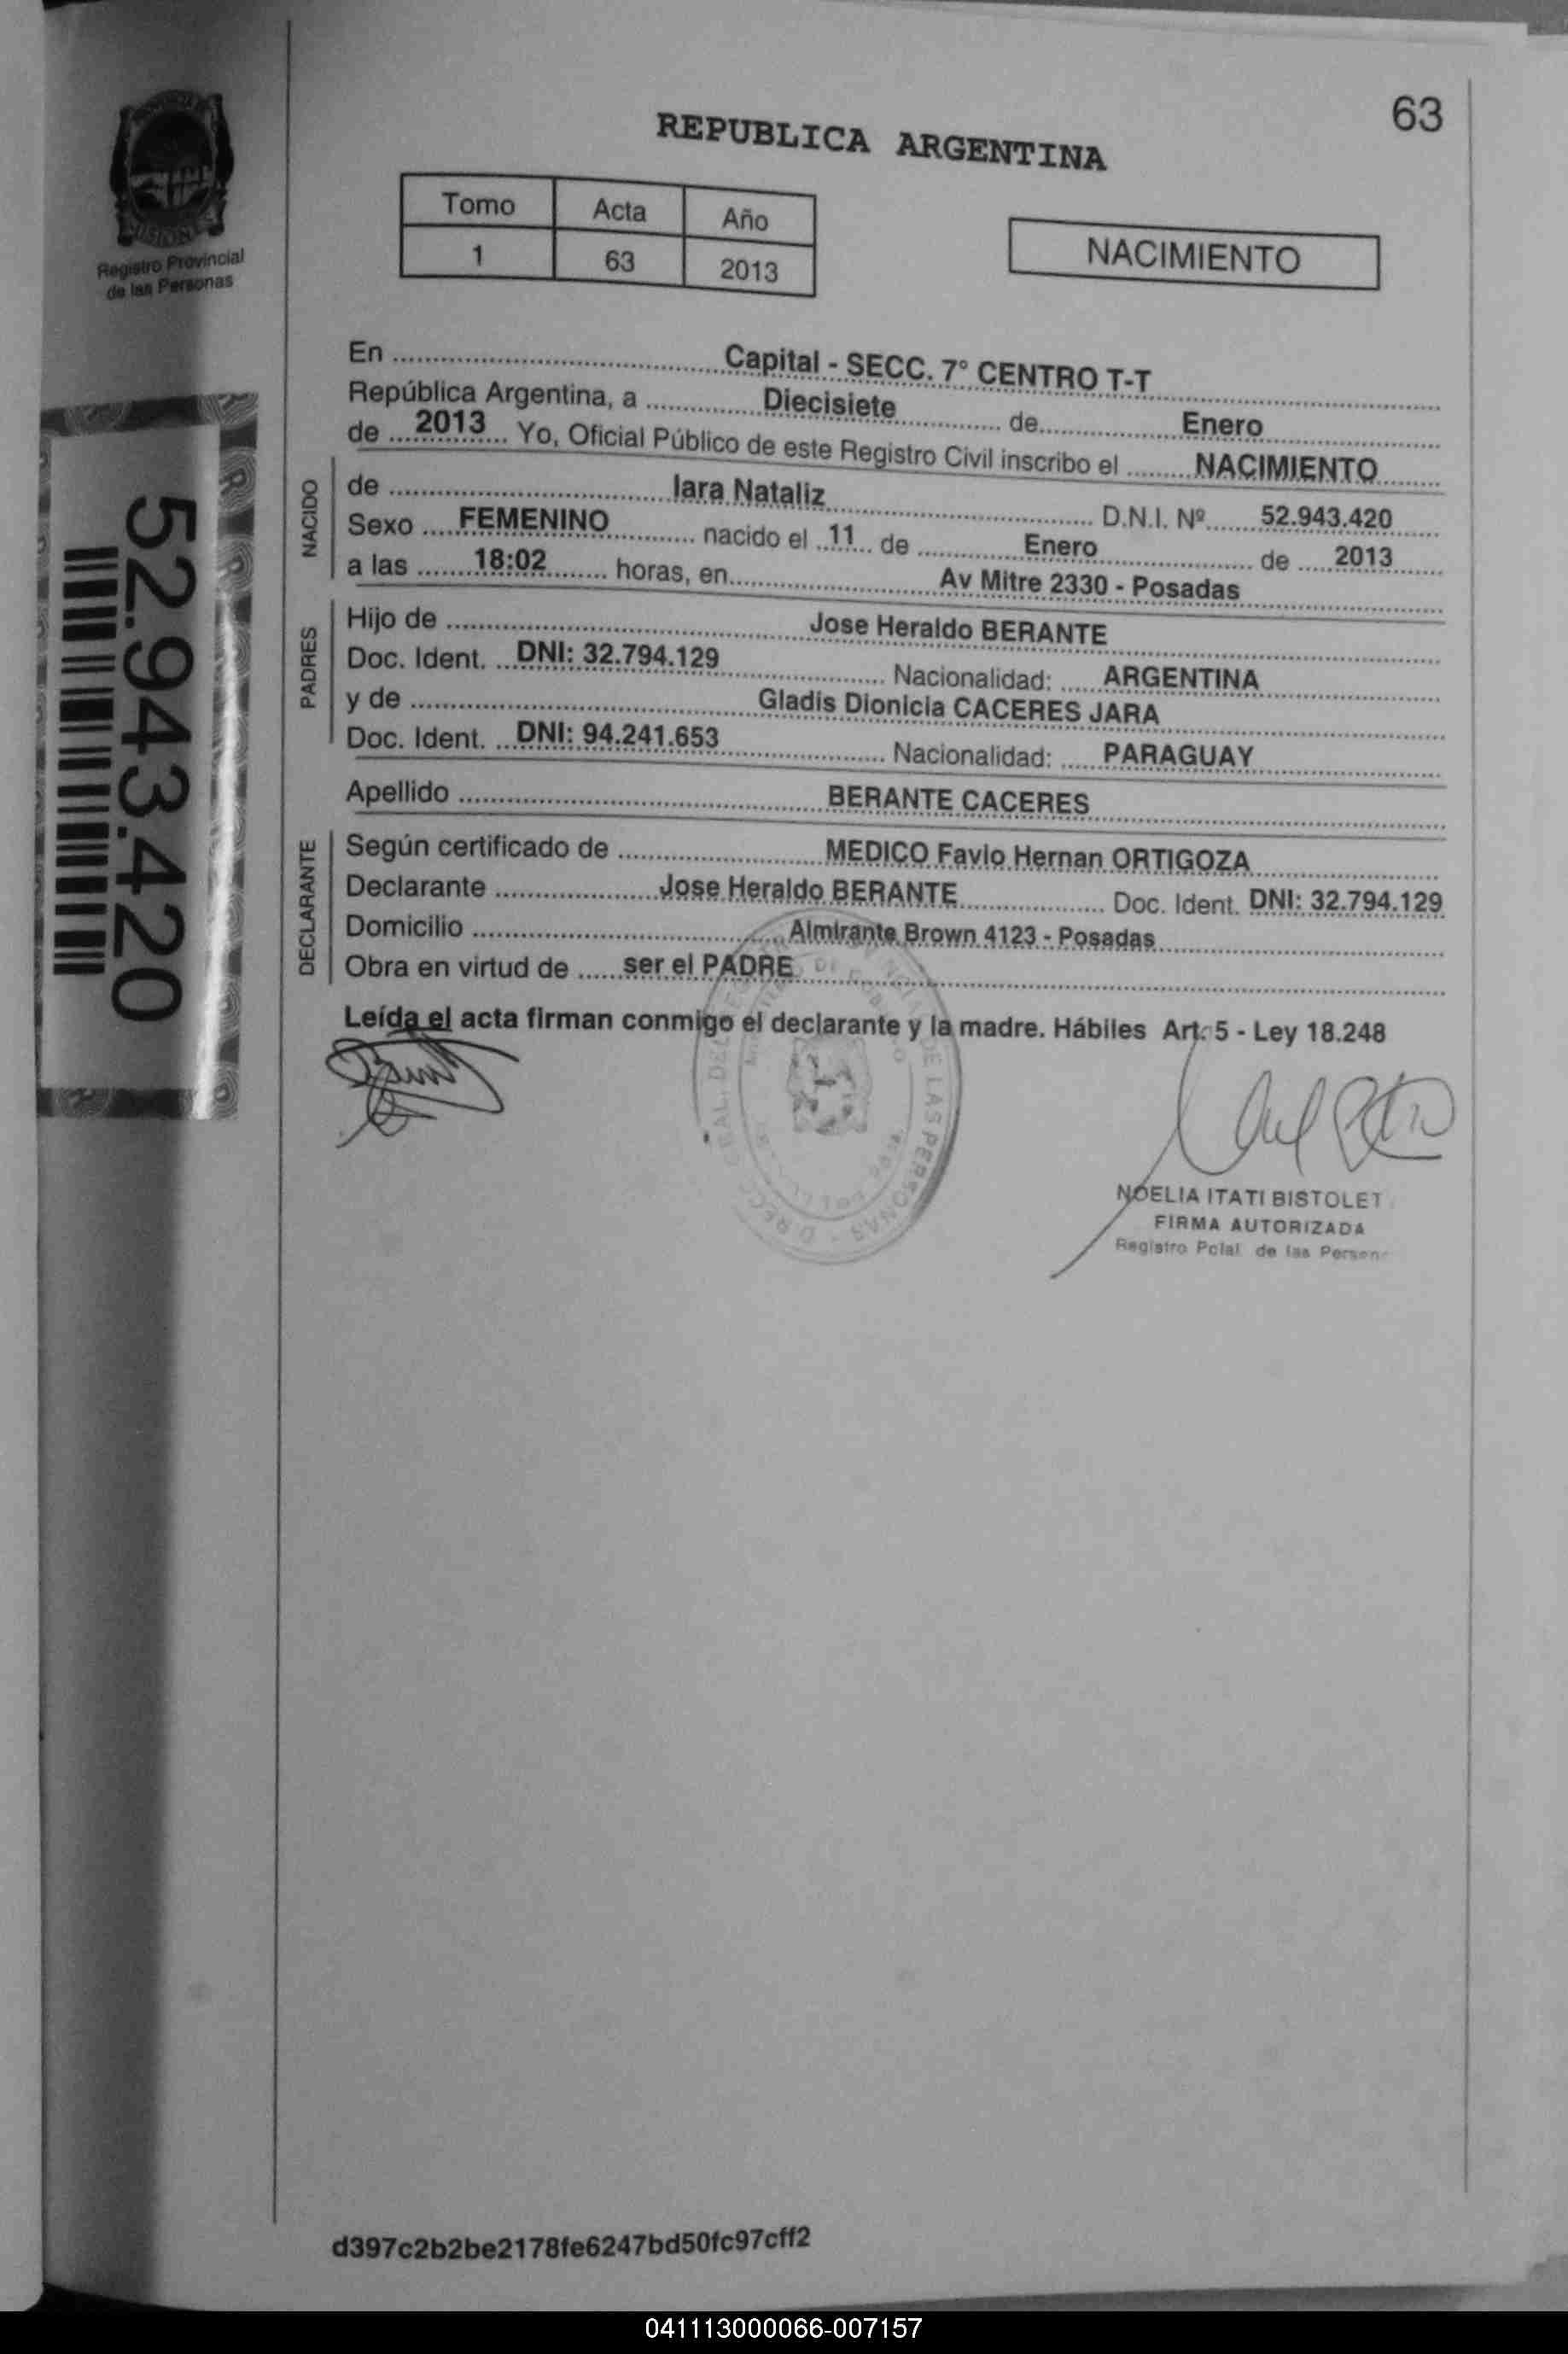 63
REPUBLICA ARGENTINA
Tomo Acta Año
1 63 2013
NACIMIENTO
MISIONES
Registro Provincial
de las Personas
52.943.420
En ........ Capital - SECC. 7° CENTRO T-T
República Argentina, a ........ Diecisiete ........ de ........ Enero
de .... 2013 .... Yo, Oficial Público de este Registro Civil inscribo el ........ NACIMIENTO
NACIDO
de ........ Iara Nataliz ........ D.N.I. Nº ...... 52.943.420
Sexo .... FEMENINO ........ nacido el .. 11 .. de ........ Enero ........ de .... 2013
a las ...... 18:02 ...... horas, en ........ Av Mitre 2330 - Posadas
PADRES
Hijo de ........ Jose Heraldo BERANTE
Doc. Ident. ... DNI: 32.794.129 ........ Nacionalidad: ..... ARGENTINA
y de ........ Gladis Dionicia CACERES JARA
Doc. Ident. ... DNI: 94.241.653 ........ Nacionalidad: ..... PARAGUAY
Apellido ........ BERANTE CACERES
DECLARANTE
Según certificado de ........ MEDICO Favio Hernan ORTIGOZA
Declarante ........ Jose Heraldo BERANTE ........ Doc. Ident. DNI: 32.794.129
Domicilio ........ Almirante Brown 4123 - Posadas
Obra en virtud de ...... ser el PADRE
Leída el acta firman conmigo el declarante y la madre. Hábiles Art. 5 - Ley 18.248
DE LAS PERSONAS
NOELIA ITATI BISTOLET
FIRMA AUTORIZADA
Registro Pcial. de las Person
d397c2b2be2178fe6247bd50fc97cff2
041113000066-007157